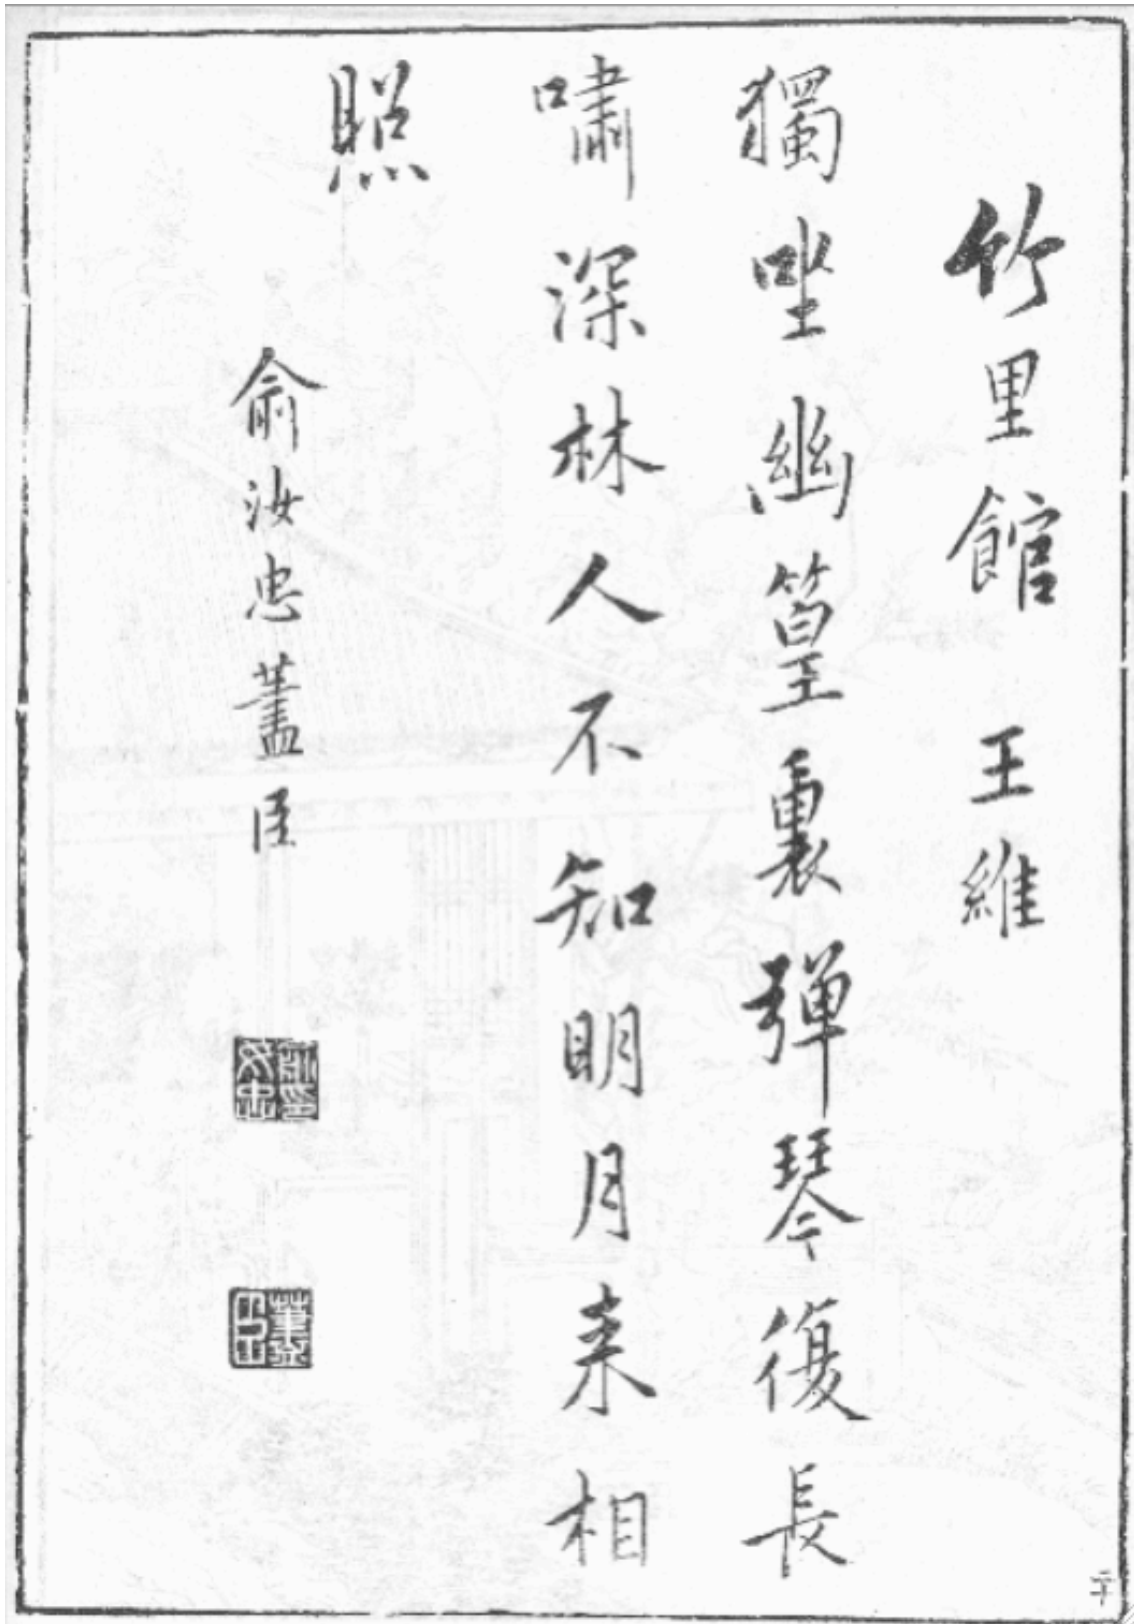 竹里館　王維
獨坐幽篁裏彈琴復長
嘯深林人不知明月来相
照
俞汝忠藎臣